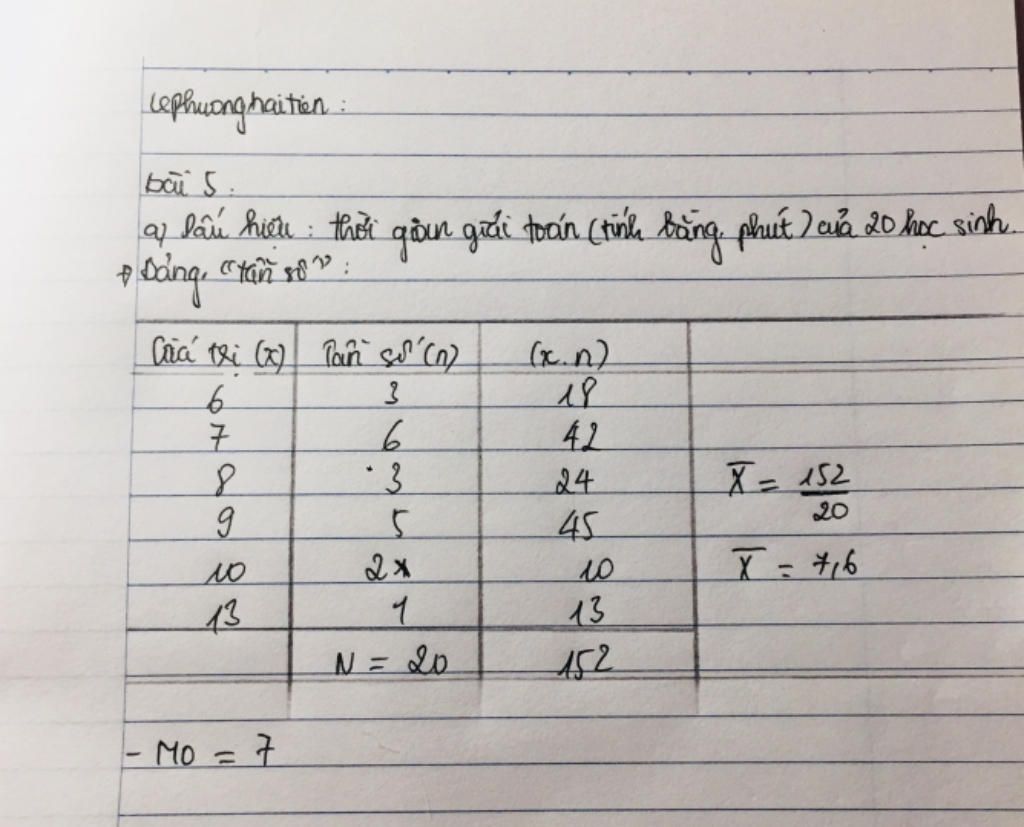 lephuonghaitien :
bài 5 :
a) Dấu hiệu : thời gian giải toán (tính bằng phút) của 20 học sinh.
Bảng "tần số" :
Giá trị (x) Tần số (n) (x.n)
6 3 18
7 6 42
8 3 24 X̅ = 152/20
9 5 45
10 2 10 X̅ = 7,6
13 1 13
N = 20 152
- M0 = 7